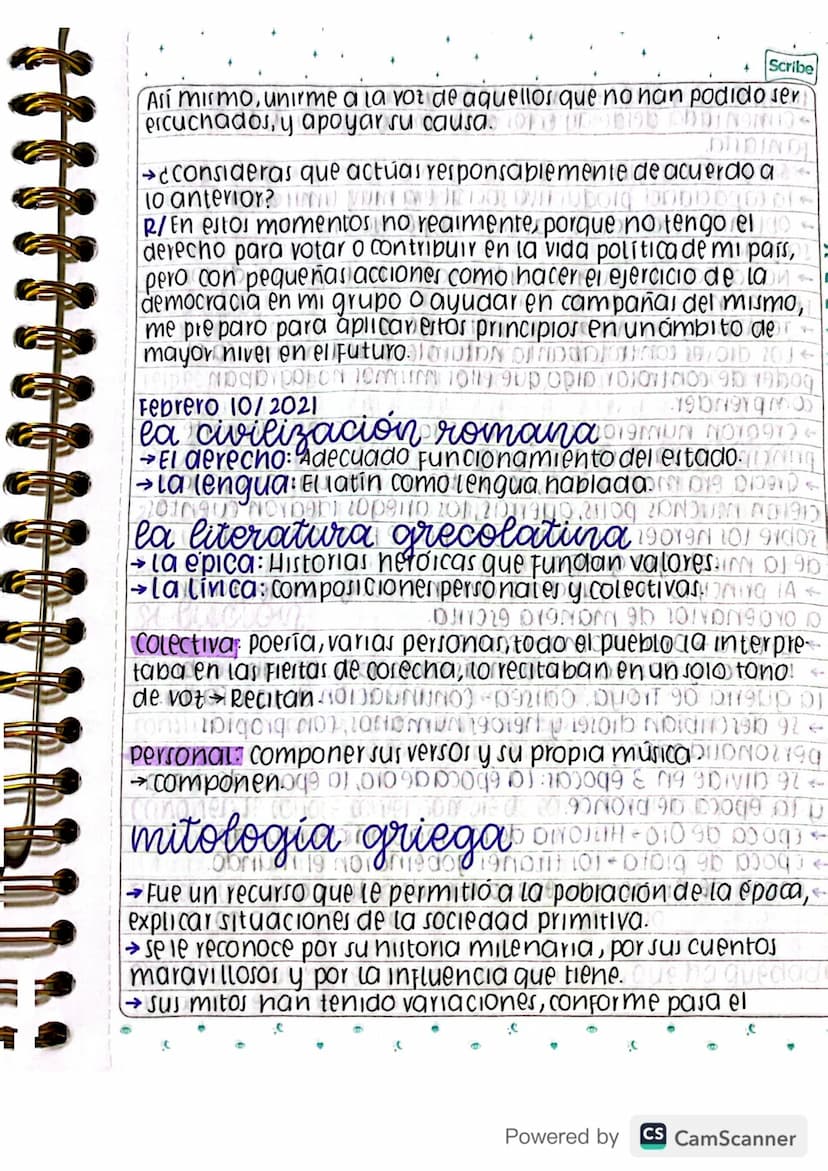 Scribe
Así mismo, unirme a la voz de aquellos que no han podido ser
escuchados, y apoyar su causa.
→¿consideras que actúas responsablemente de acuerdo a
lo anterior?
R/ En estos momentos no realmente, porque no tengo el
derecho para votar o contribuir en la vida política de mi país,
pero con pequeñas acciones como hacer el ejercicio de la
democracia en mi grupo o ayudar en campañas del mismo,
me preparo para aplicar estos principios en un ámbito de
mayor nivel en el futuro.
Febrero 10/2021
la civilización romana
→El derecho: Adecuado funcionamiento del estado.
→La lengua: El latín como lengua hablada.
la literatura grecolatina
→La épica: Historias heróicas que fundan valores.
→La línca: composiciones personales y colectivas.
colectiva: poesía, varias personas, todo el pueblo la interpre-
taba en las fiestas de cosecha, lo recitaban en un solo tono
de voz → Recitan.
personal: componer sus versos y su propia música.
→componen.
mitología griega
→Fue un recurso que le permitió a la población de la época,
explicar situaciones de la sociedad primitiva.
→se le reconoce por su historia milenaria, por sus cuentos
maravillosos y por la influencia que tiene.
→sus mitos han tenido variaciones, conforme pasa el
Powered by CS CamScanner